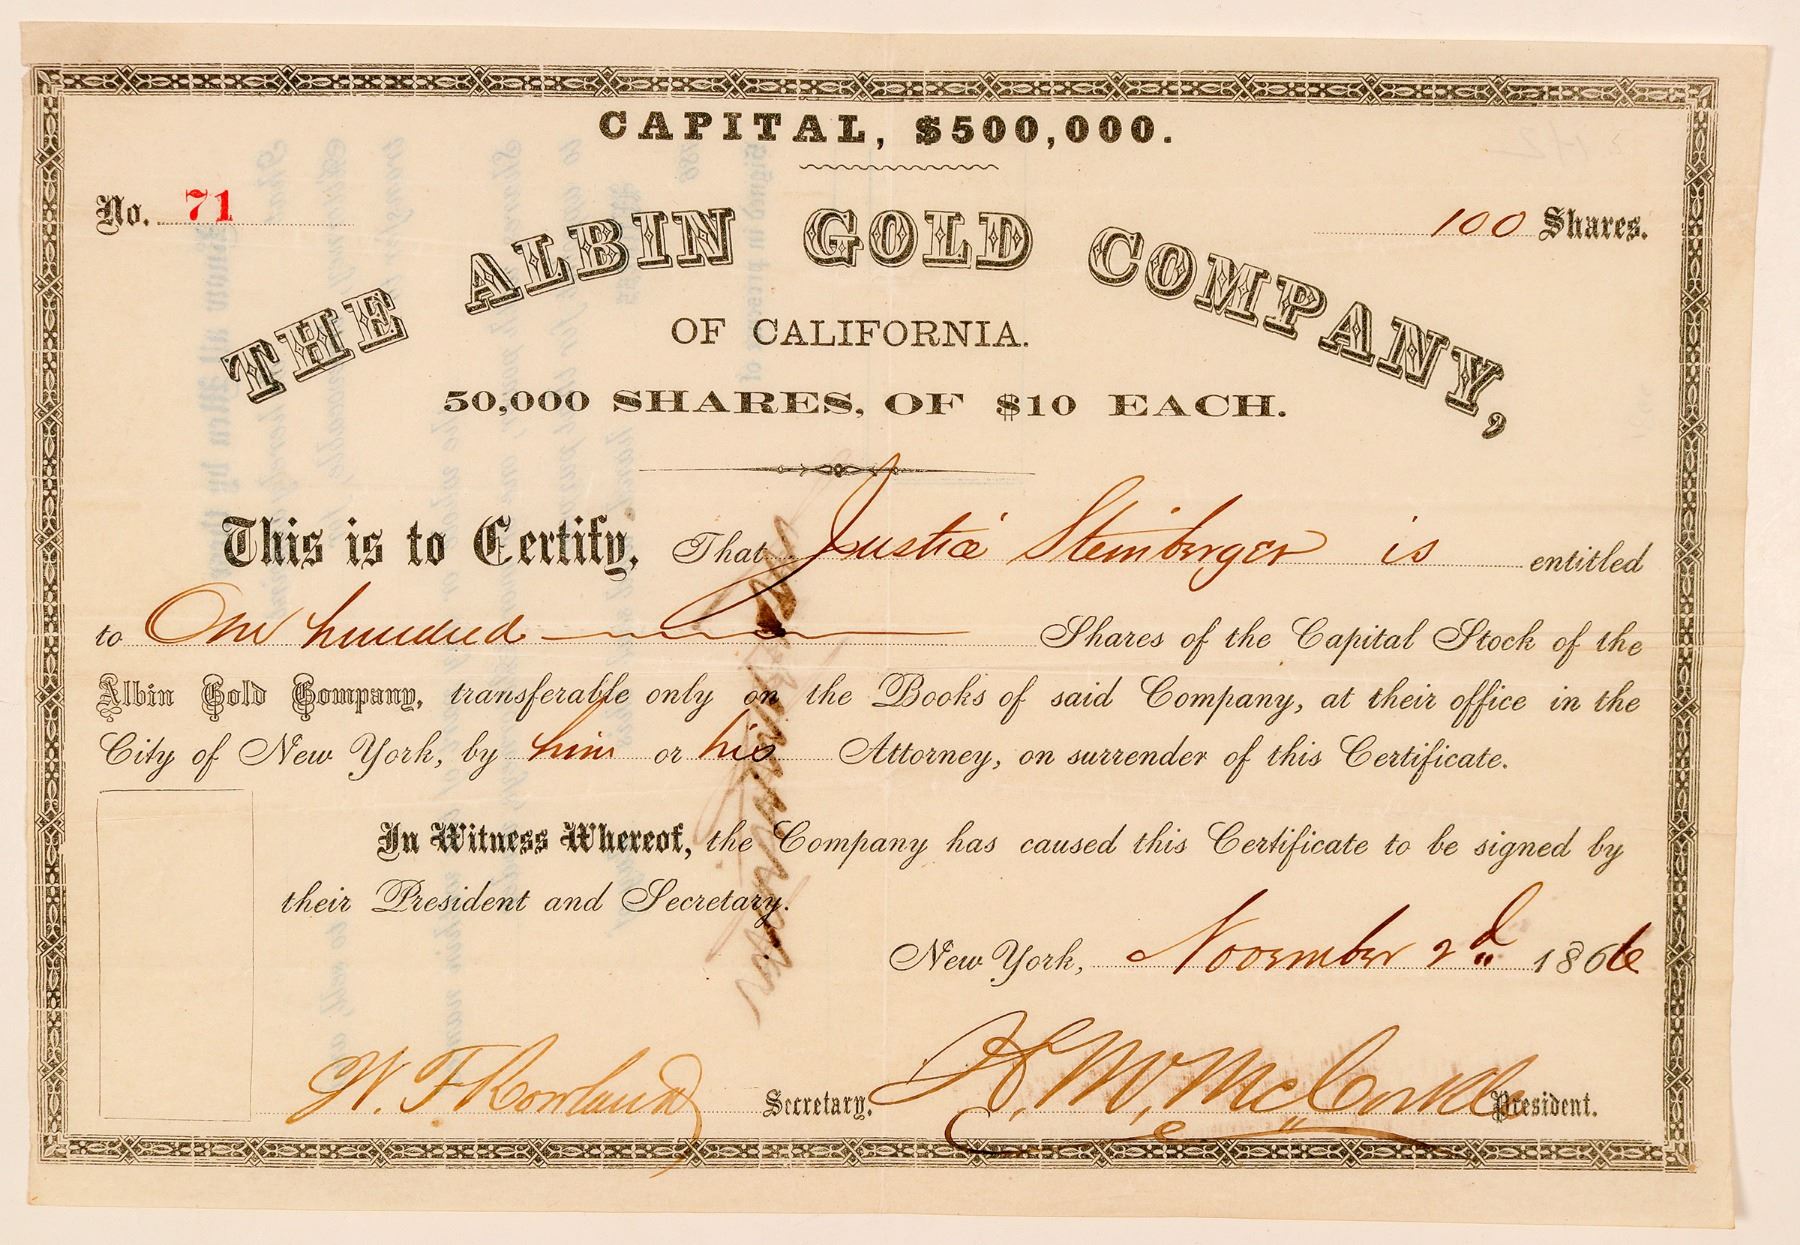 CAPITAL, $500,000.
No. 71
100 Shares.
THE ALBIN GOLD COMPANY,
OF CALIFORNIA.
50,000 SHARES, OF $10 EACH.
This is to Certify, That Justice Steinberger is entitled
to One hundred Shares of the Capital Stock of the
Albin Gold Company, transferable only on the Books of said Company, at their office in the
City of New York, by him or his Attorney, on surrender of this Certificate.
In Witness Whereof, the Company has caused this Certificate to be signed by
their President and Secretary.
New York, November 2d 1866
W. F. Rowland Secretary.
H. M. McCorkle President.